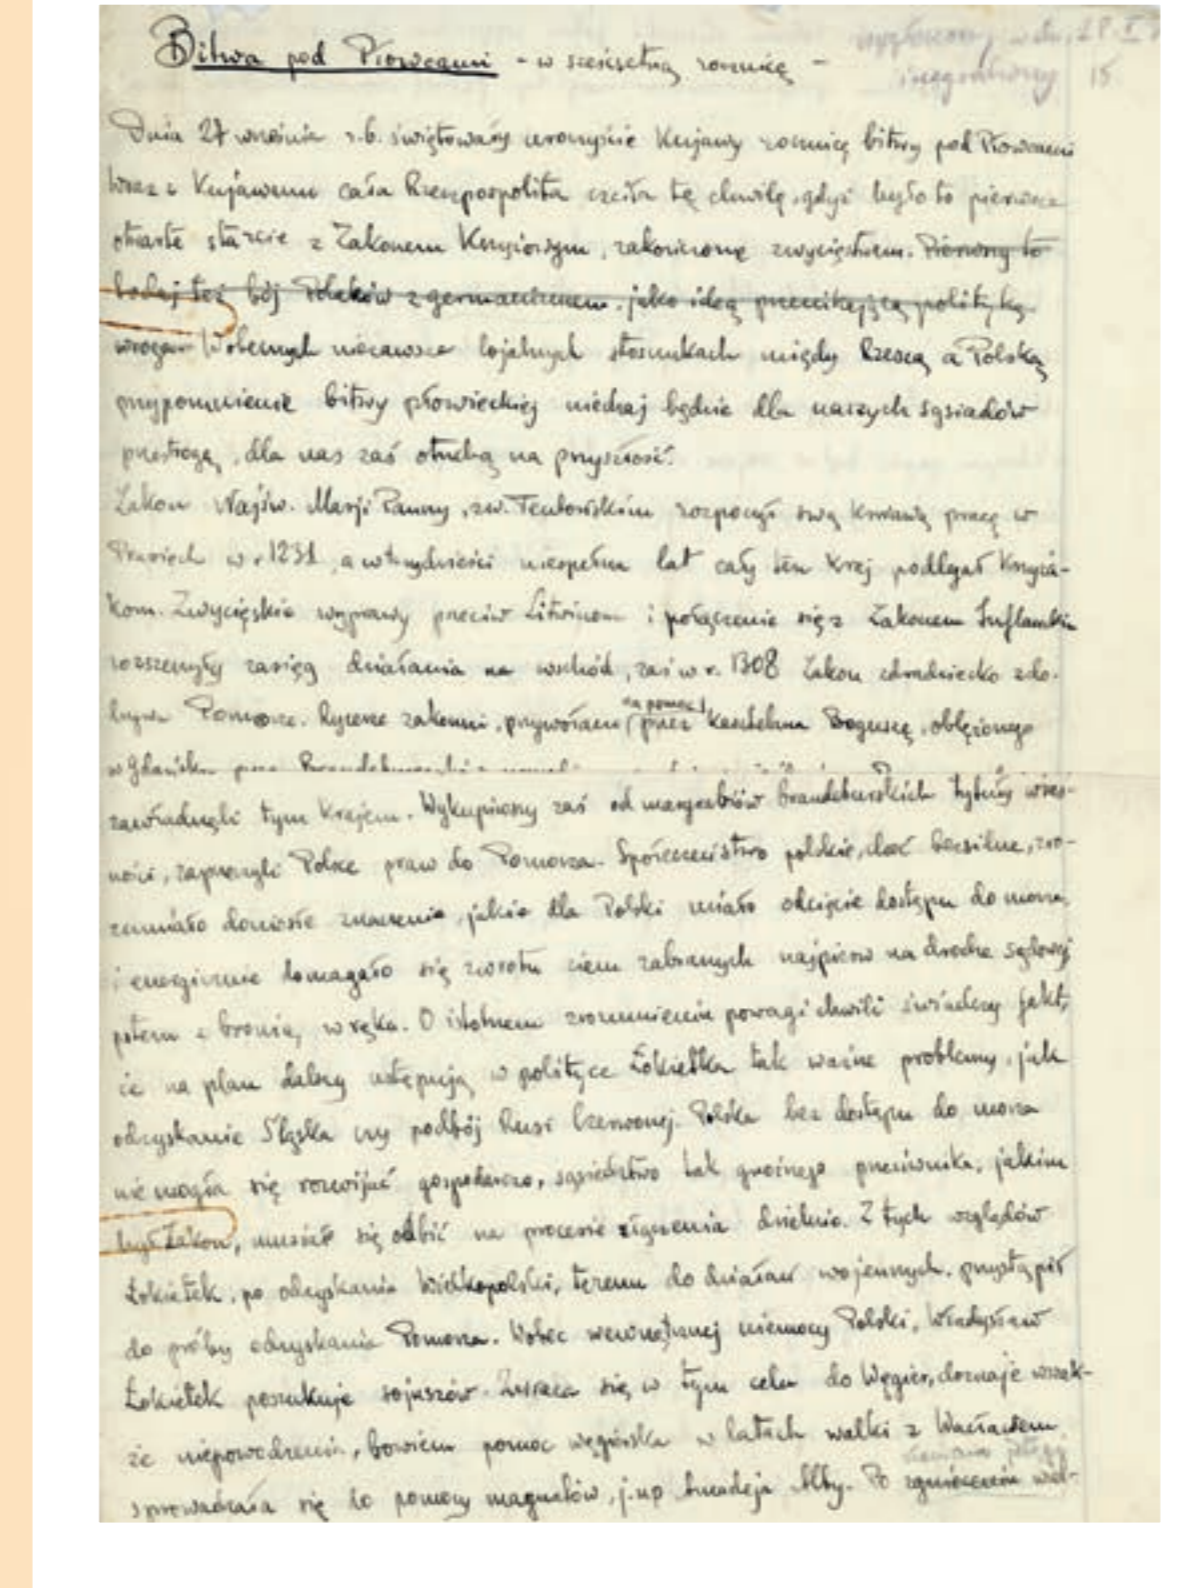 Bitwa pod Płowcami - w sześćsetną rocznicę -
15
Dnia 27 września r.b. świętowały uroczyście Kujawy rocznicę bitwy pod Płowcami
wraz z Kujawami cała Rzeczpospolita czciła tę chwilę, gdyż było to pierwsze
otwarte starcie z Zakonem Krzyżowym, zakończone zwycięstwem. Pierwszy to
bodaj też bój Polaków z germanizmem, jako ideą przenikającą politykę
wroga. W obecnych niezawsze lojalnych stosunkach między Rzeszą a Polską
przypomnienie bitwy płowieckiej niechaj będzie dla naszych sąsiadów
przestrogą, dla nas zaś otuchą na przyszłość.
Zakon Najśw. Marji Panny, zw. Teutońskim rozpoczął swą krwawą pracę w
Prusiech w r. 1231, a w trzydzieści niespełna lat cały ten kraj podlegał Krzyża-
kom. Zwycięskie wyprawy przeciw Litwinom i połączenie się z Zakonem Inflanckim
rozszerzyły zasięg działania na wschód, zaś w r. 1308 Zakon zdradziecko zdo-
bywa Pomorze. Rycerze zakonni, przywołani na pomoc przez kasztelana Boguszę, oblężonego
w Gdańsku przez
zawładnęli tym krajem. Wykupiwszy zaś od margrabiów brandeburskich tytuły włas-
ności, zaprzeczyli Polsce praw do Pomorza. Społeczeństwo polskie, choć bezsilne, zro-
zumiało doniosłe znaczenie, jakie dla Polski miało odcięcie dostępu do morza,
i energicznie domagało się zwrotu ziem zabranych najpierw na drodze sądowej
potem z bronią w ręku. O istotnem zrozumieniu powagi chwili świadczy fakt,
że na plan dalszy ustępują w polityce Łokietka tak ważne problemy, jak
odzyskanie Śląska czy podbój Rusi Czerwonej. Polska bez dostępu do morza
nie mogła się rozwijać gospodarczo, sąsiedztwo tak groźnego przeciwnika, jakim
był Zakon, musiało się odbić na procesie złączenia dzielnic. Z tych względów
Łokietek, po odzyskaniu Wielkopolski, terenu do działań wojennych, przystąpił
do próby odzyskania Pomorza. Wobec wewnętrznej niemocy Polski, Władysław
Łokietek poszukuje sojuszów. Zwraca się w tym celu do Węgier, doznaje wszak-
że niepowodzenia, bowiem pomoc węgierska w latach walki z Wacławem
sprowadzała się do pomocy magnatów, j.np. Amadeja Aby. Po zgnieceniu wel-